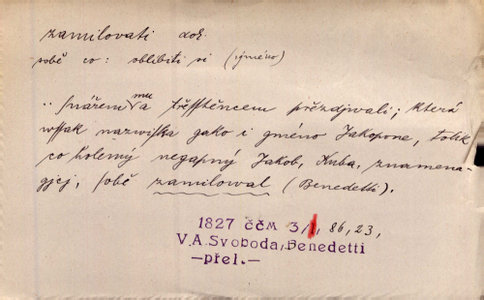 zamilovati dok.
sobě co: oblíbiti si (jméno)
.. snářem mu a třeštěncem přezdjwali; která
wssak nazwiska gako i gméno Jakopone, tolik
co holemý negapný Jakob, Kuba, znamena-
gjcj, sobě zamilowal (Benedetti).
1827 ččm 3/1, 86, 23,
V. A. Svoboda, Benedetti
—přel.—